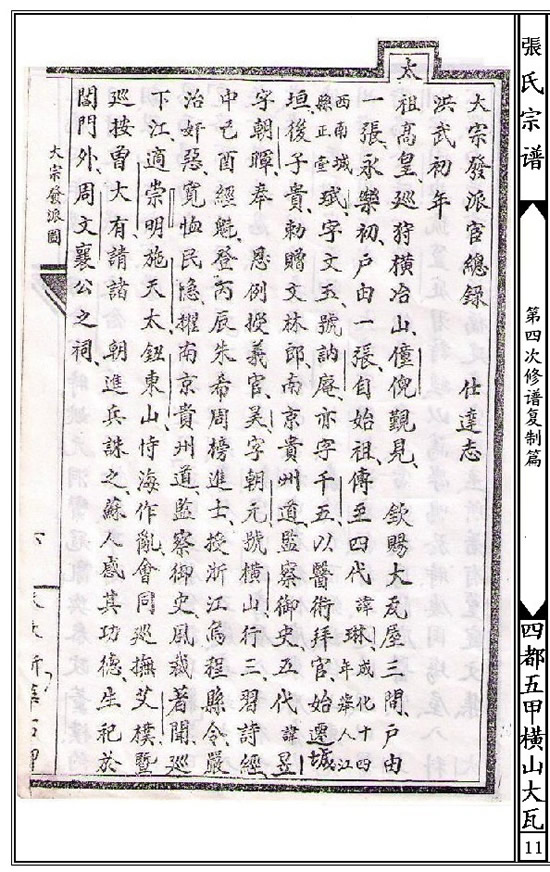 張氏宗谱
第四次修谱复制篇
四都五甲橫山大瓦
11
大宗發派官總錄 仕達志
洪武初年
太
祖高皇巡狩橫冶山僮倪觐見欽賜大瓦屋三間戶由
一張永樂初戶由一張自始祖傳至四代諱琳成化十四年舉人江
西南城縣正堂珷字文玉號訥庵亦字千五以醫術拜官始遷城
垣後子貴勅贈文林郎南京貴州道監察御史五代諱昱
字朝暉奉 恩例授義官吴字朝元號橫山行三習詩經
中己酉經魁登丙辰朱希周榜進士授浙江烏程縣令嚴
治奸惡寬恤民隐擢南京貴州道監察御史風裁著聞巡
下江適崇明施天太鈕東山恃海作亂會同巡撫艾樸暨
巡按曾大有請諸 朝進兵誅之蘇人感其功德生祀於
閶門外周文襄公之祠
大宗發派圖